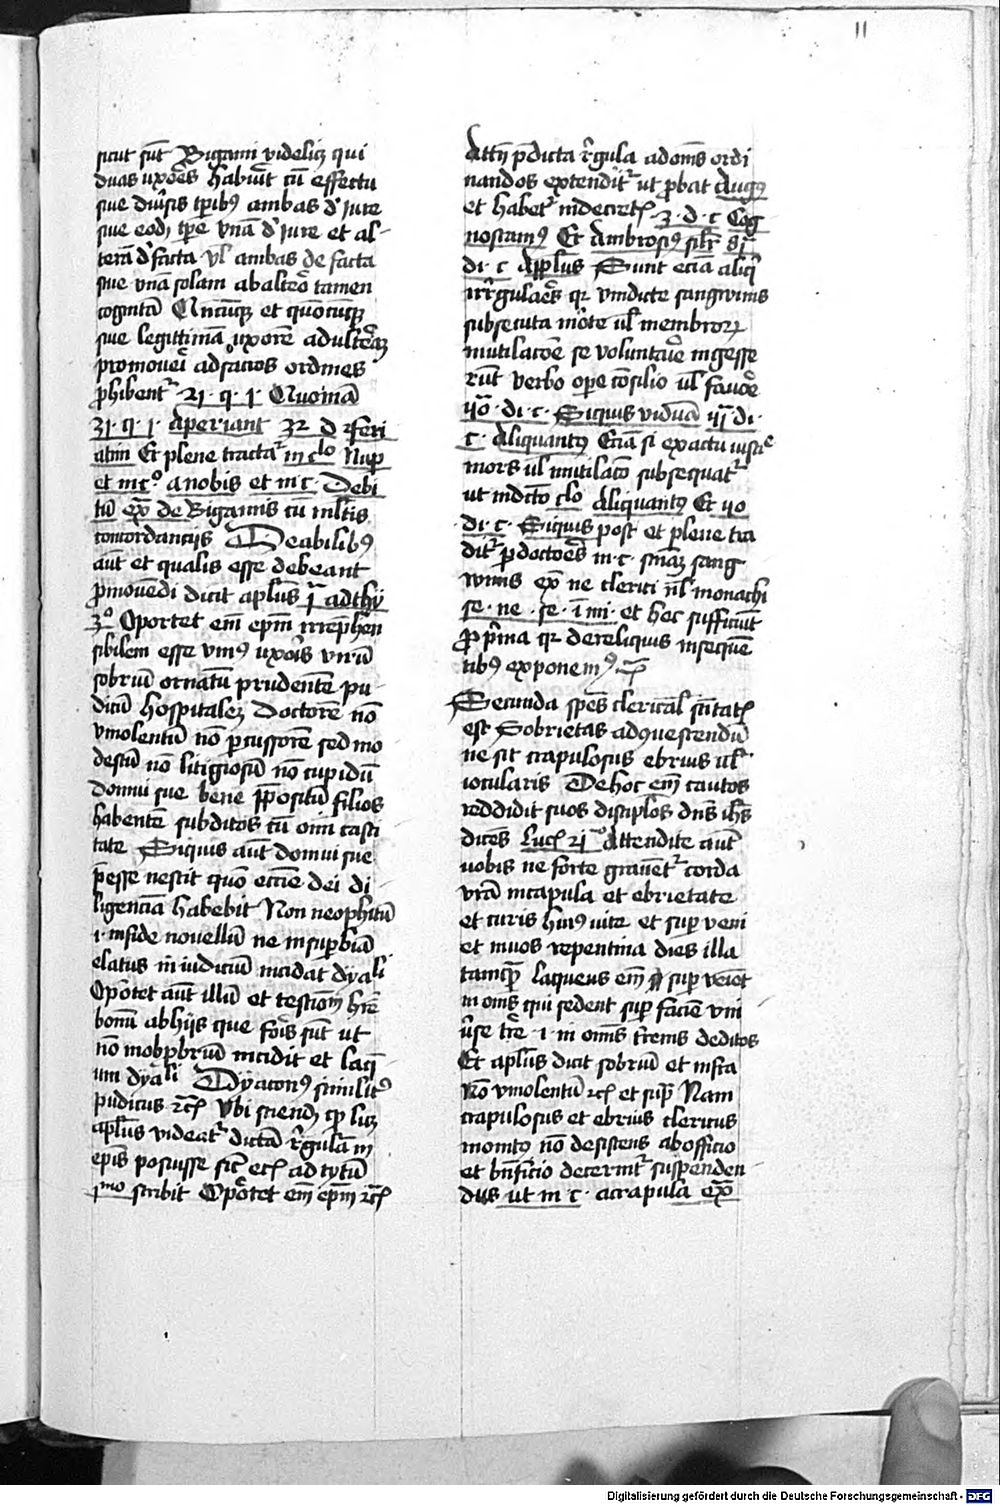 11
sicut sūt Bigami videlicꝫ qui
duas uxōes habūt cū effectu
siue diūsis tꝑibꝰ ambas d' iure
siue eodꝫ tꝑe vnā d' iure et al-
terā d' facta vl' ambas de facta
siue vnā solam ab alteo tamen
cognitā Qn̄cūqꝫ et quōcūqꝫ
siue legittimā uxorē adulteꝫ
promoueī ad sacros ordines
ꝓhibent᷑ · 21 · q · 1 · Nuꝑ
31 · q · 1 · aperiant 32 d
Et plene tractat᷑ in c̄lo Nuꝑ
et in c° · a nobis et in c · Debi
tū ex̄ de Bigamis cū ml̄tis
concordancijs De abilibꝰ
aūt et qualis esse debeant
ꝓmouēdi dicit apl̄us j ad thy
3° Oportet em̄ ep̄m irrep̄hen
sibilem esse vniꝰ uxoīs virū
sobriū ornatū prudentē pu-
dicū hospitalēꝫ Doctorē nō
vinolentū nō ꝑcussorē sed mo
destū nō litigiosū nō cupidū
domui sue bene ꝓpositū filios
habentē subditos cū oīni casti
tate Siquis aūt domui sue
p̄esse nescit quō eccīe dei di
ligenciā habebit Non neophitū
.i. in fide nouellū ne in suꝑbiā
elatus in iudiciū incidat dyali
Oportet aūt illū et testiom̄ hr̄e
bonū ab hijs que foīs sūt ut
nō in obꝓbriū incidit et laq̄
um dyali Dyaconꝰ similitꝰ
pudicus ꝛc̄ Vbi sciendꝫ qꝑ licꝫ
apl̄us videat᷑ dictā r̄gulā in
ep̄is posuisse sic̄ etc̄ ad tytū
jmo scribit Oportet em̄ ep̄m ꝛc̄
Attn̄ p̄dicta r̄gula ad om̄s ordi
nandos extendit᷑ ut ꝓbat Augꝰ
et habet᷑ in decretꝭ · 3 · d · c Cog
noscamꝰ Et Ambrosiꝰ sil̄r
di · c Apl̄us Sunt eciā aliq̄
irr̄gulaēs qr vindicte sangwinis
subsecuta mōte ul' membroꝝ
mutilacōe se voluntaīe ingesse
rūt verbo oꝑe cōsilio ul' fauoē
· di · c · Siquis viduā · di ·
c · Aliquantꝰ Eciā si ex actu iuste
mors ul' mutilaco subsequat᷑
ut in dicto c̄lo Aliquantꝰ Et
· di · c · Siquis post et plene tra
dit᷑ ꝑ doctoēs in · c · sn̄iaꝫ sang
winis ex̄ ne clerici ul' monachi
se · ne · se · īmi · et hec sufficiūt
ꝓ p̄ma qr de reliquis in sequē
tibꝰ exponemꝰ
Secunda sp̄es clerical̄ sc̄itatꝭ
est Sobrietas adquescendū
ne sit crapulosus ebrius ul'
iocularis De hoc em̄ cautos
reddidit suos discipl̄os dn̄s ih̄s
dicēs Luc̄ 21° Attendite aūt
uobis ne forte grauēt᷑ corda
vr̄a in capula et ebrietate
et curis huiꝰ uite et suꝑ veni
et in uos repentina dies illa
tamqꝫ laqueus em̄ suꝑ veiet
in om̄s qui sedent suꝑ faciē vni
ūse tr̄e · i · in om̄s tr̄enis deditos
Et apl̄us dicit sobriū et infra
Nō vinolentū ꝛc̄ et suꝑ Nam
crapulosus et ebrius clericus
monitꝰ nō desistens ab officio
et bn̄ficio determīt᷑ suspenden
dus ut in c · a crapula ex̄
Digitalisierung gefördert durch die Deutsche Forschungsgemeinschaft - DFG